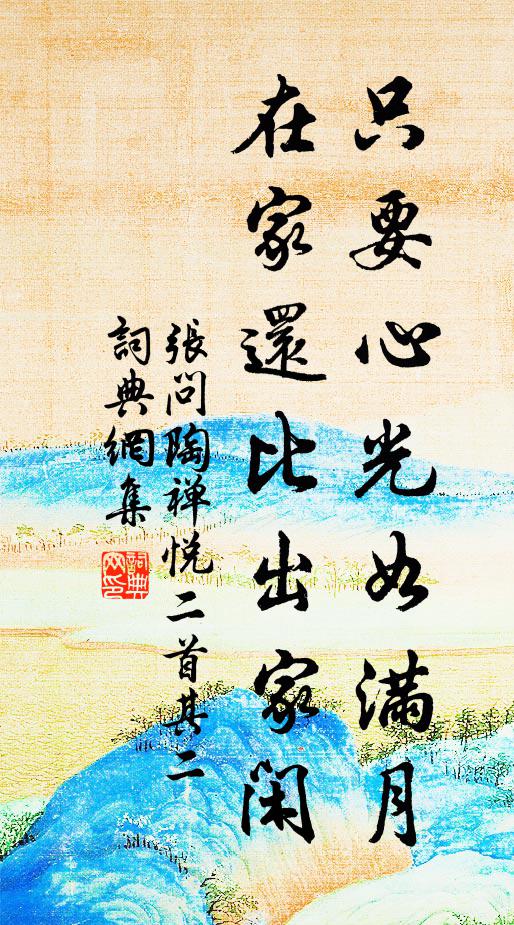 只要心光如满月
在家還比出家閑
張问陶禅悦二首其二
詞典網集
詞典
网印